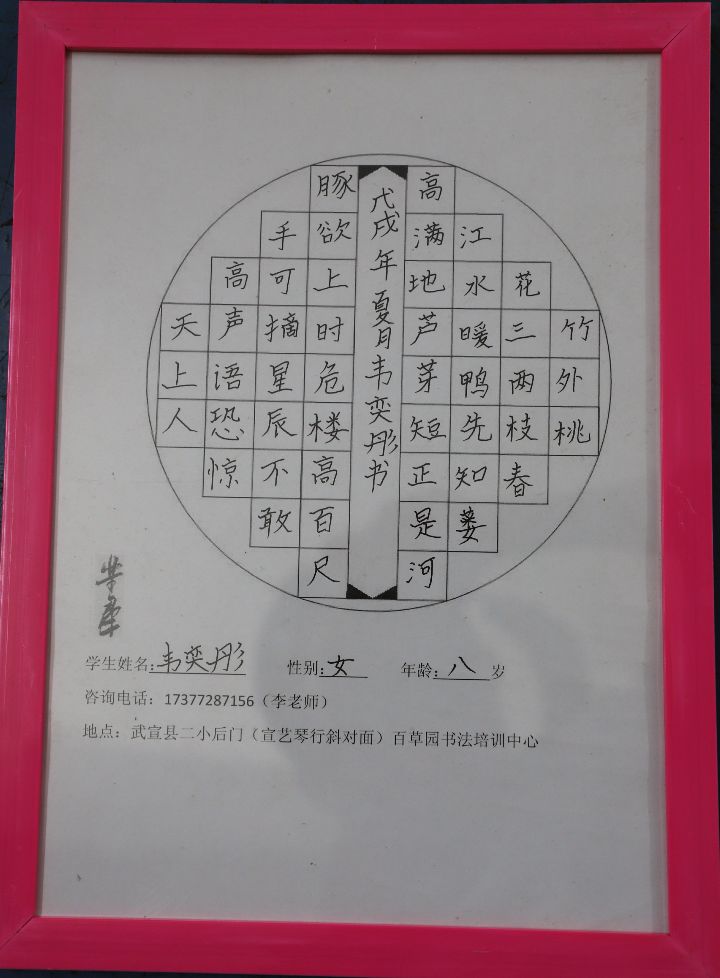 竹外桃
花三两枝春
江水暖鸭先知蒌
高满地芦芽短正是河
戊戌年夏月韦奕彤书
豚欲上时危楼高百尺
手可摘星辰不敢
高声语恐惊
天上人
学生姓名:韦奕彤 性别:女 年龄:八岁
咨询电话：17377287156（李老师）
地点：武宣县二小后门（宣艺琴行斜对面）百草园书法培训中心